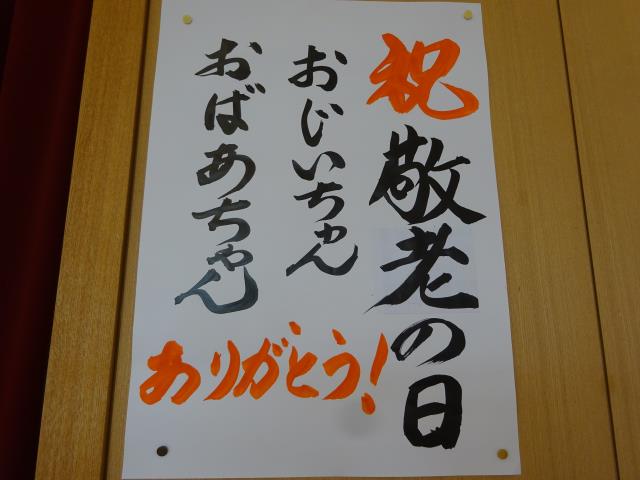 祝敬老の日
おじいちゃん
おばあちゃん
ありがとう!